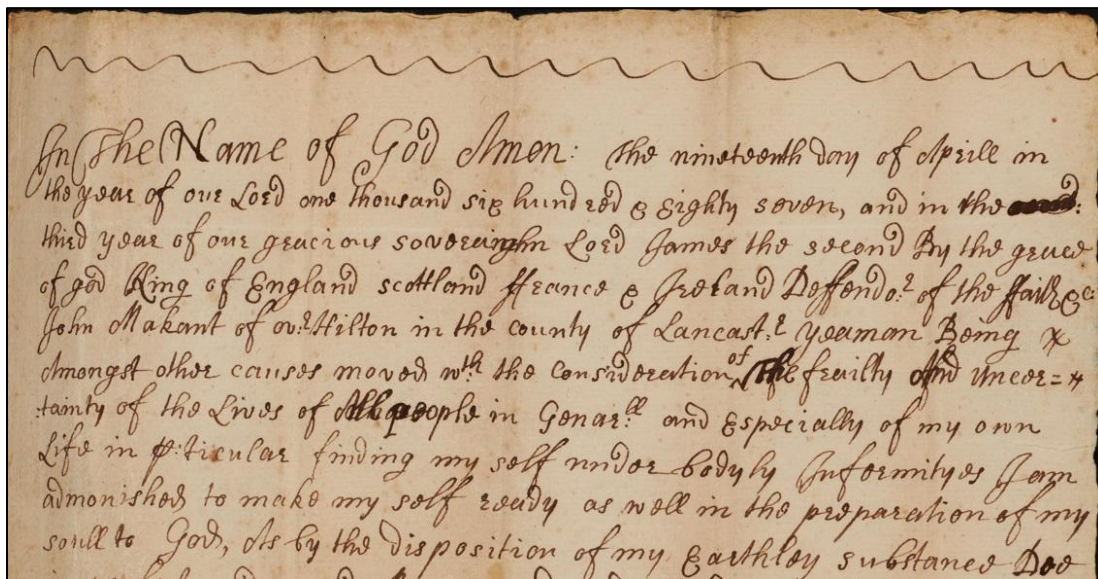 In The Name of God Amen: the nineteenth day of Aprill in
the year of our Lord one thousand six hundred & Eighty seven, and in the
third year of our gracious soveraingn Lord James the second By the grace
of god King of England scottland ffrance & Ireland Deffendor of the ffaith &c
John Makant of ovr Hilton in the county of Lancastr yeaman Being
Amongst other causes moved wth the Consideration of The frailty And Uncer=
tainty of the Lives of All people in Genarll and Especially of my own
Life in pticular finding my self under bodyly Infermityes I am
admonished to make my self ready as well in the preparation of my
soull to God, As by the disposition of my Earthley substance Doe